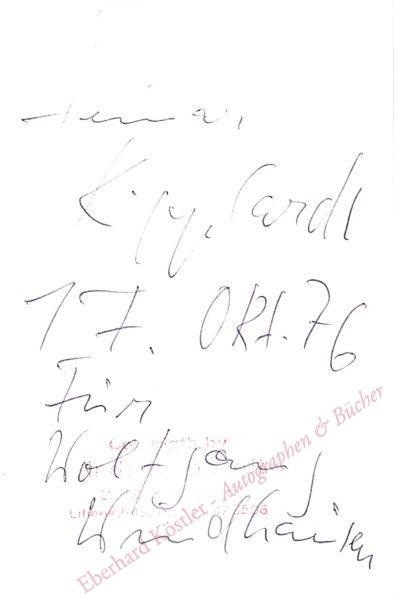 Heinar
Kipphardt
17. Okt. 76
Für
Wolfgang
Windhausen
Eberhard Köstler - Autographen & Bücher